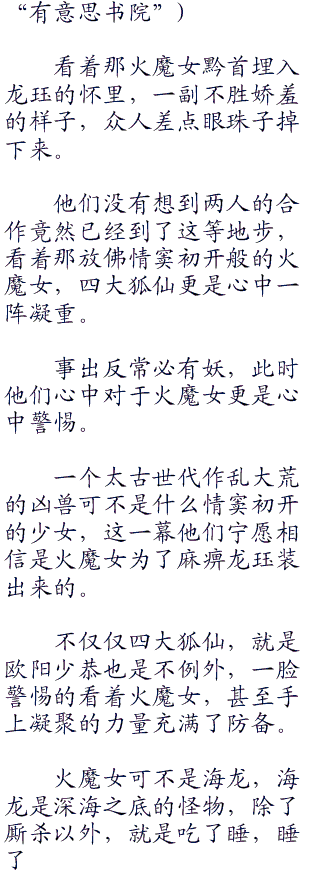 “有意思书院”)
看着那火魔女黔首埋入
龙珏的怀里，一副不胜娇羞
的样子，众人差点眼珠子掉
下来。
他们没有想到两人的合
作竟然已经到了这等地步，
看着那放佛情窦初开般的火
魔女，四大狐仙更是心中一
阵凝重。
事出反常必有妖，此时
他们心中对于火魔女更是心
中警惕。
一个太古世代作乱大荒
的凶兽可不是什么情窦初开
的少女，这一幕他们宁愿相
信是火魔女为了麻痹龙珏装
出来的。
不仅仅四大狐仙，就是
欧阳少恭也是不例外，一脸
警惕的看着火魔女，甚至手
上凝聚的力量充满了防备。
火魔女可不是海龙，海
龙是深海之底的怪物，除了
厮杀以外，就是吃了睡，睡
了